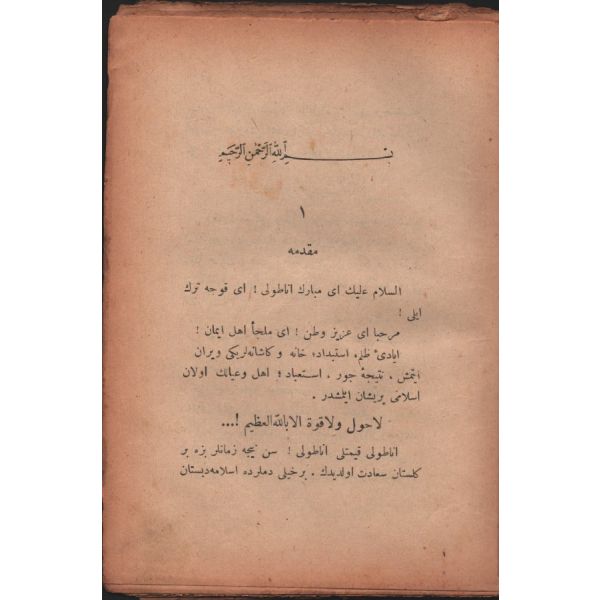 بسم الله الرحمن الرحيم
١
مقدمه
السلام عليك ای مبارك اناطولی ! ای قوجه ترك
ایلی !
مرحبا ای عزيز وطن ! ای ملجأ اهل ايمان !
ايادیٔ ظلم، استبداد؛ خانه و كاشانه‌لريكی ويران
ايتمش ، نتيجهٔ جور ، استعباد ؛ اهل وعيالك اولان
اسلامی پريشان ايلمشدر .
لاحول ولاقوة الا بالله العظيم !...
اناطولی قيمتلی اناطولی ! سن نيجه زمانلر بزه بر
كلستان سعادت اولديدك . برخيلی دملرده اسلامه دبستان